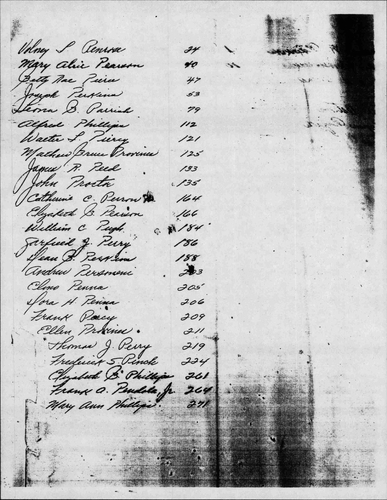 Volney S Penrose 24
Mary Alice Pearson 40
Betty Mae Peirce 47
Joseph Perkins 53
B Parrish 79
Alfred Phillips 112
Walter L Perry 121
Mathew Bruce Province 125
James R. Peed 133
John Procta 135
Catherine C. Perron 164
Elizabeth G Pearson 166
William C Pugh 184
Garfield J. Perry 186
B. Perkins 188
Andrew 203
Elmo Penna 205
Dora H Penna 206
Frank Percy 209
Ellen 211
Thomas J. Perry 219
Frederick S. Pinch 224
Elizabeth B Phillips 261
Frank A. Jr 264
Mary Ann Phillips 271